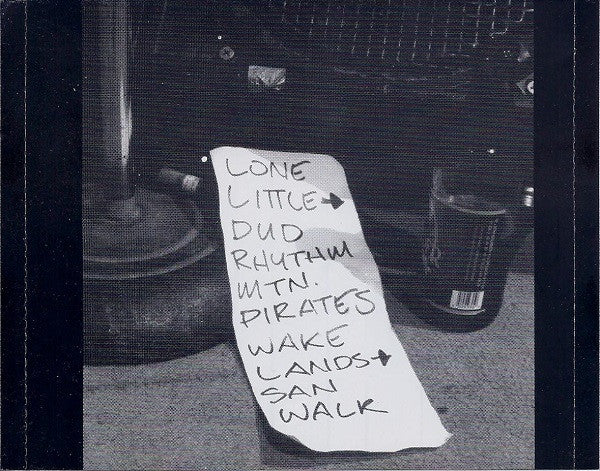 LONE
LITTLE→
DUD
RHYTHM
MTN.
PIRATES
WAKE
LANDS→
SAN
WALK